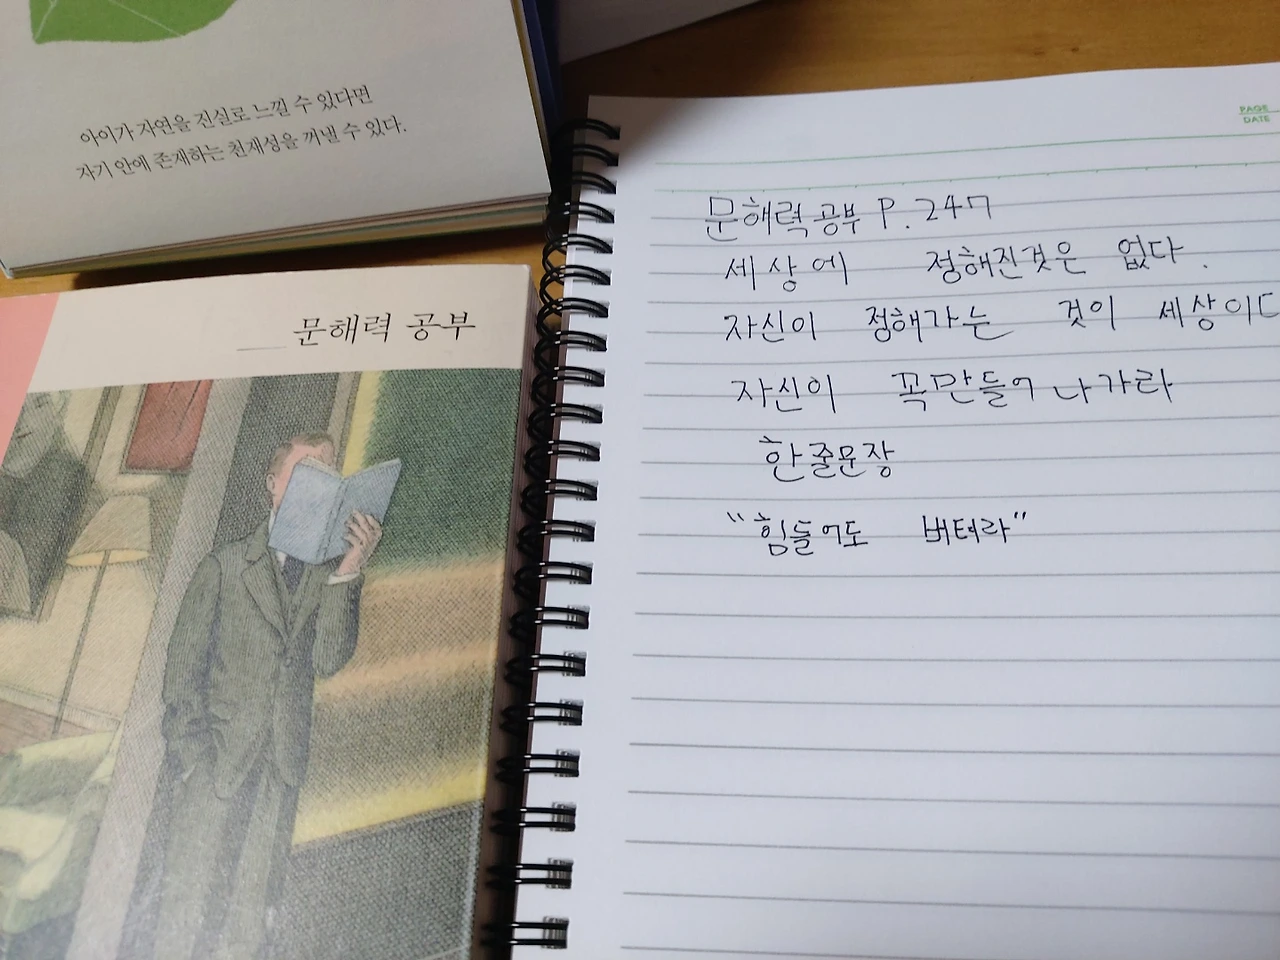 아이가 자연을 진실로 느낄 수 있다면
자기 안에 존재하는 천재성을 꺼낼 수 있다.
문해력 공부
PAGE
DATE
문해력 공부 P. 247
세상에 정해진것은 없다.
자신이 정해가는 것이 세상이다
자신이 꼭만들어 나가라
한줄문장
"힘들어도 버텨라"